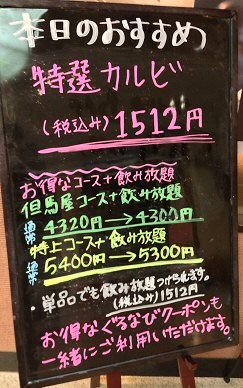 本日のおすすめ
特選カルビ
(税込み)1512円
お得なコース+飲み放題
但馬屋コース+飲み放題
通常 4320円→4300円
特上コース+飲み放題
通常 5400円→5300円
・単品でも飲み放題つけられます。
(税込み)1512円
お得なぐるなびクーポンも
一緒にご利用いただけます。